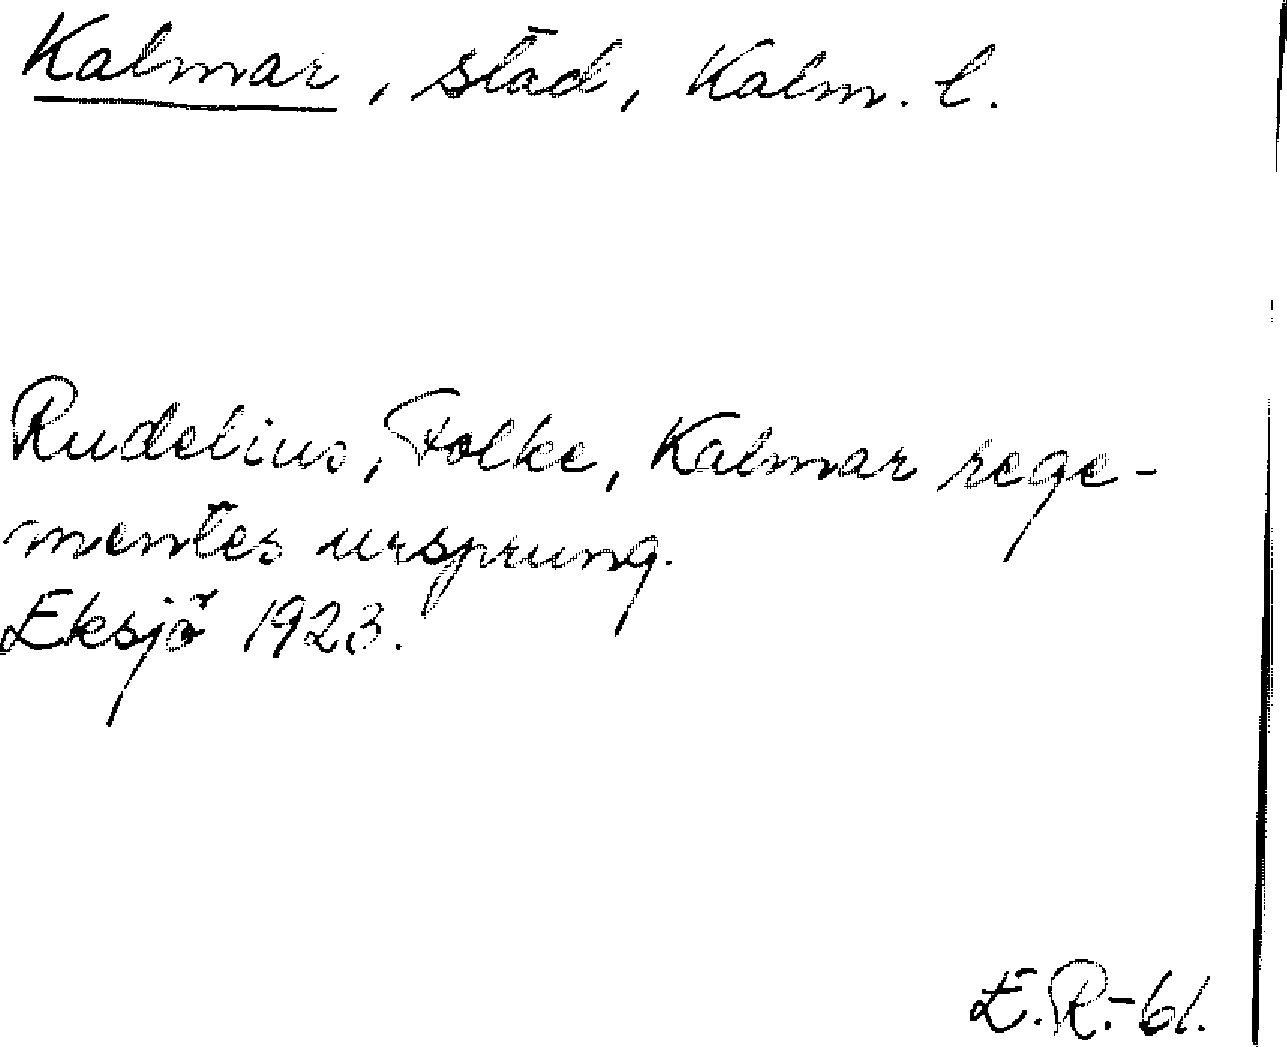 Kalmar, stad, Kalm. l.
Rudelius, Folke, Kalmar rege-
mentes ursprung.
Eksjö 1923.
E.R.-61.